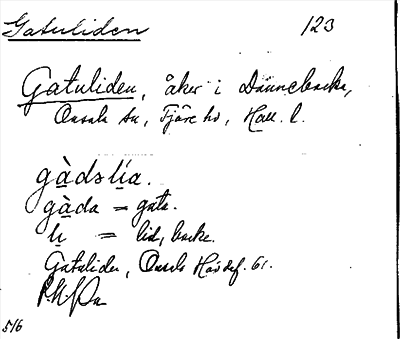 Gatuliden 123
Gatuliden, åker i Dannebacka,
Onsala sn, Fjäre hd, Hall. l.
gàdslía.
gàda = gata.
li = lid, backe.
Gatuliden, Onsala
516